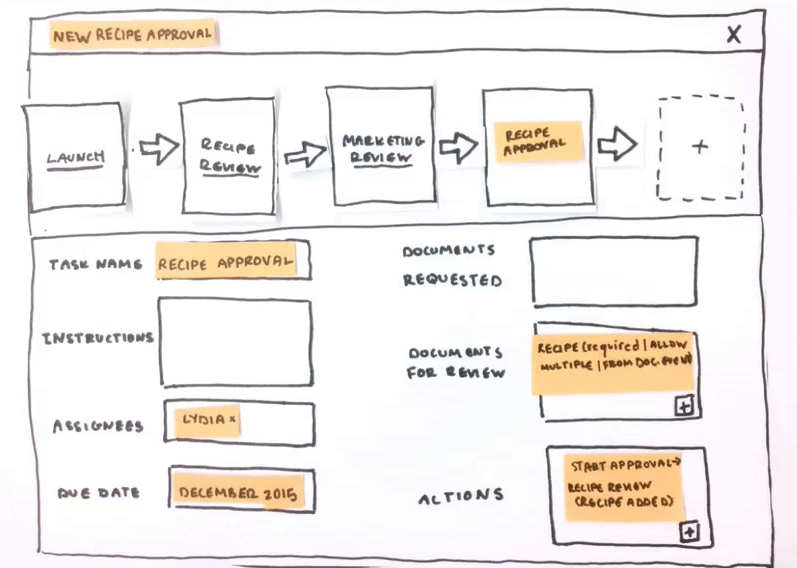 NEW RECIPE APPROVAL
X
LAUNCH
RECIPE
REVIEW
MARKETING
REVIEW
RECIPE
APPROVAL
+
TASK NAME
RECIPE APPROVAL
INSTRUCTIONS
ASSIGNEES
LYDIA x
DUE DATE
DECEMBER 2015
DOCUMENTS
REQUESTED
DOCUMENTS
FOR REVIEW
RECIPE (required | ALLOW
MULTIPLE | FROM DOC. EVENT)
+
ACTIONS
START APPROVAL→
RECIPE REVIEW
(RECIPE ADDED)
+